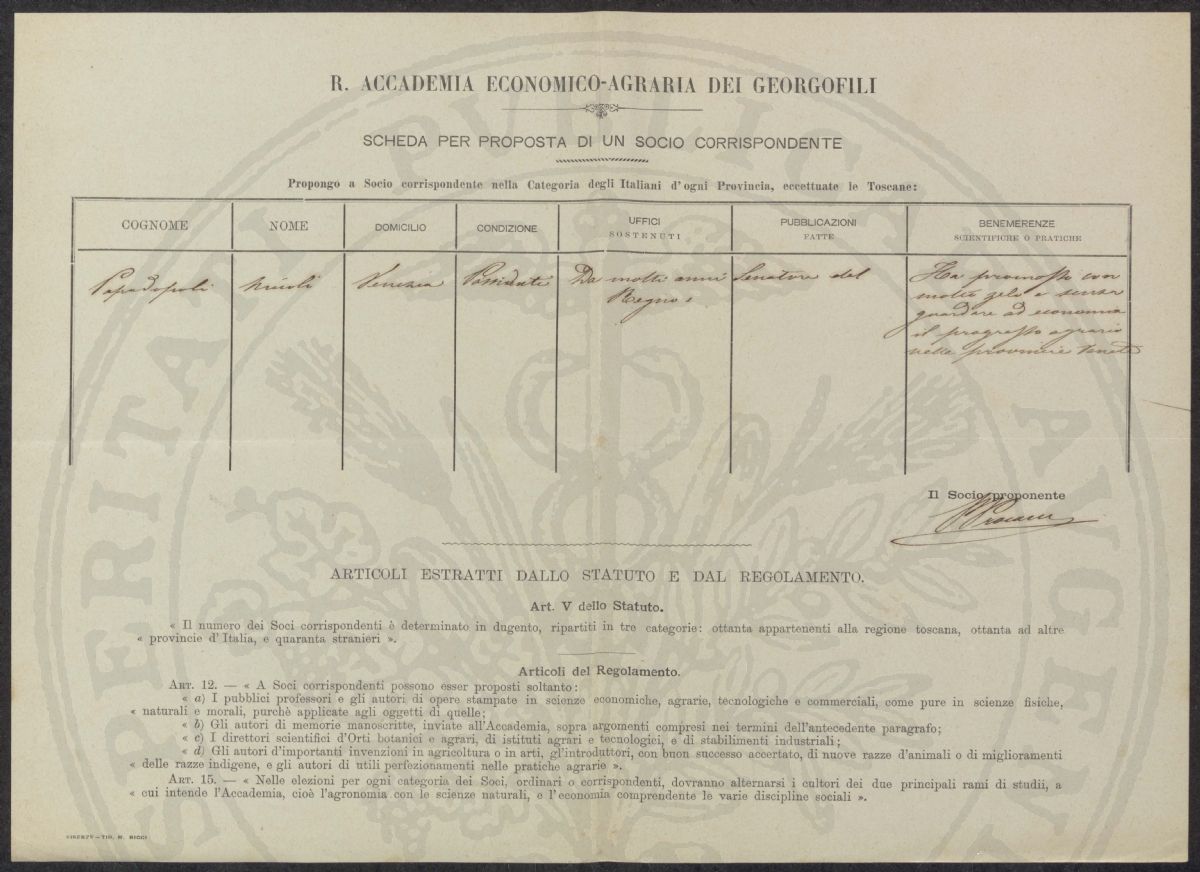 R. ACCADEMIA ECONOMICO-AGRARIA DEI GEORGOFILI
SCHEDA PER PROPOSTA DI UN SOCIO CORRISPONDENTE
Propongo a Socio corrispondente nella Categoria degli Italiani d'ogni Provincia, eccettuate le Toscane:
COGNOME NOME DOMICILIO CONDIZIONE UFFICI SOSTENUTI PUBBLICAZIONI FATTE BENEMERENZE SCIENTIFICHE O PRATICHE
Papadopoli Nicolò Venezia Possidente Da molti anni Senatore del
Regno
Ha promosso con
molto zelo e senza
guardare ad economia
il progresso agrario
nelle provincie venete
Il Socio proponente
ARTICOLI ESTRATTI DALLO STATUTO E DAL REGOLAMENTO.
Art. V dello Statuto.
« Il numero dei Soci corrispondenti è determinato in dugento, ripartiti in tre categorie: ottanta appartenenti alla regione toscana, ottanta ad altre
« provincie d'Italia, e quaranta stranieri ».
Articoli del Regolamento.
ART. 12. — « A Soci corrispondenti possono esser proposti soltanto:
« a) I pubblici professori e gli autori di opere stampate in scienze economiche, agrarie, tecnologiche e commerciali, come pure in scienze fisiche,
« naturali e morali, purchè applicate agli oggetti di quelle;
« b) Gli autori di memorie manoscritte, inviate all'Accademia, sopra argomenti compresi nei termini dell'antecedente paragrafo;
« c) I direttori scientifici d'Orti botanici e agrari, di istituti agrari e tecnologici, e di stabilimenti industriali;
« d) Gli autori d'importanti invenzioni in agricoltura o in arti, gl'introduttori, con buon successo accertato, di nuove razze d'animali o di miglioramenti
« delle razze indigene, e gli autori di utili perfezionamenti nelle pratiche agrarie ».
ART. 15. — « Nelle elezioni per ogni categoria dei Soci, ordinari o corrispondenti, dovranno alternarsi i cultori dei due principali rami di studii, a
« cui intende l'Accademia, cioè l'agronomia con le scienze naturali, e l'economia comprendente le varie discipline sociali ».
FIRENZE — TIP. M. RICCI